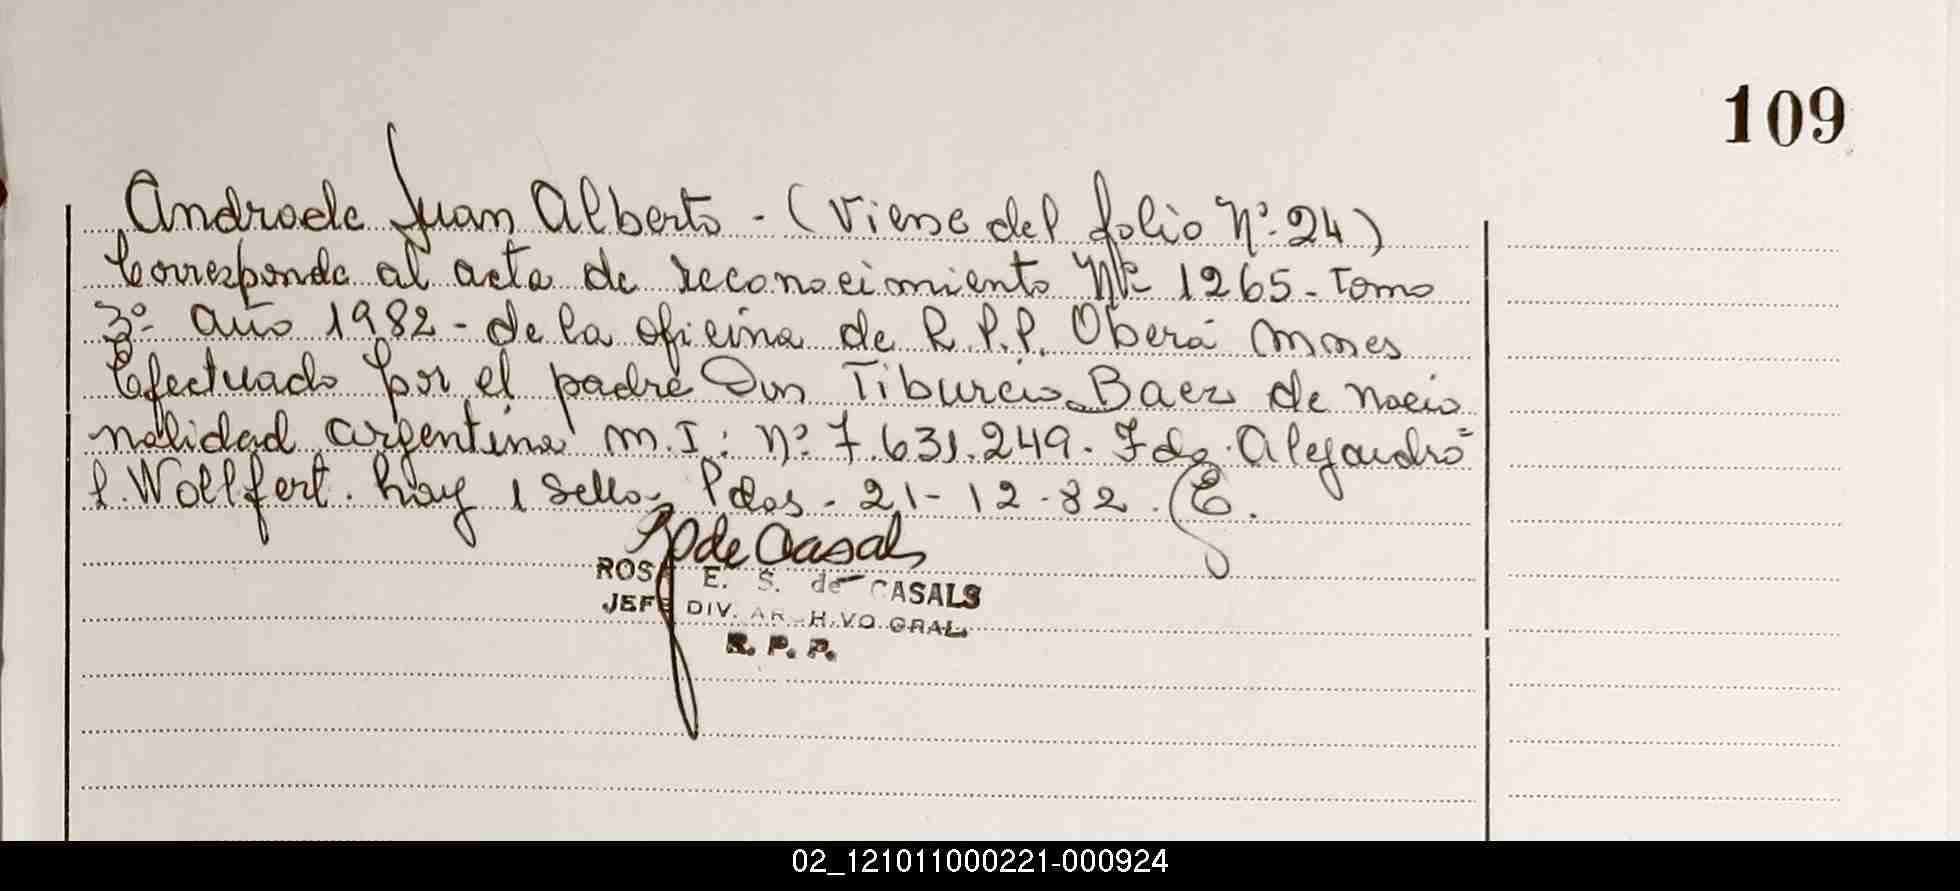 109
Androde Juan Alberto - (Viene del folio Nº 24)
Corresponde al acta de reconocimiento Nº 1265 - Tomo
3º - año 1982 - de la oficina de R.P.P. Oberá Mnes
Efectuado por el padre Don Tiburcio Baez de nacio
nalidad argentina M.I: Nº 7.631.249. Fdo. Alejandro
f. Wollfert. hay 1 sello, Pdas - 21-12-82.
R de Casals
ROSA E. S. de CASALS
JEFE DIV. ARCHIVO GRAL.
R. P. P.
02_121011000221-000924